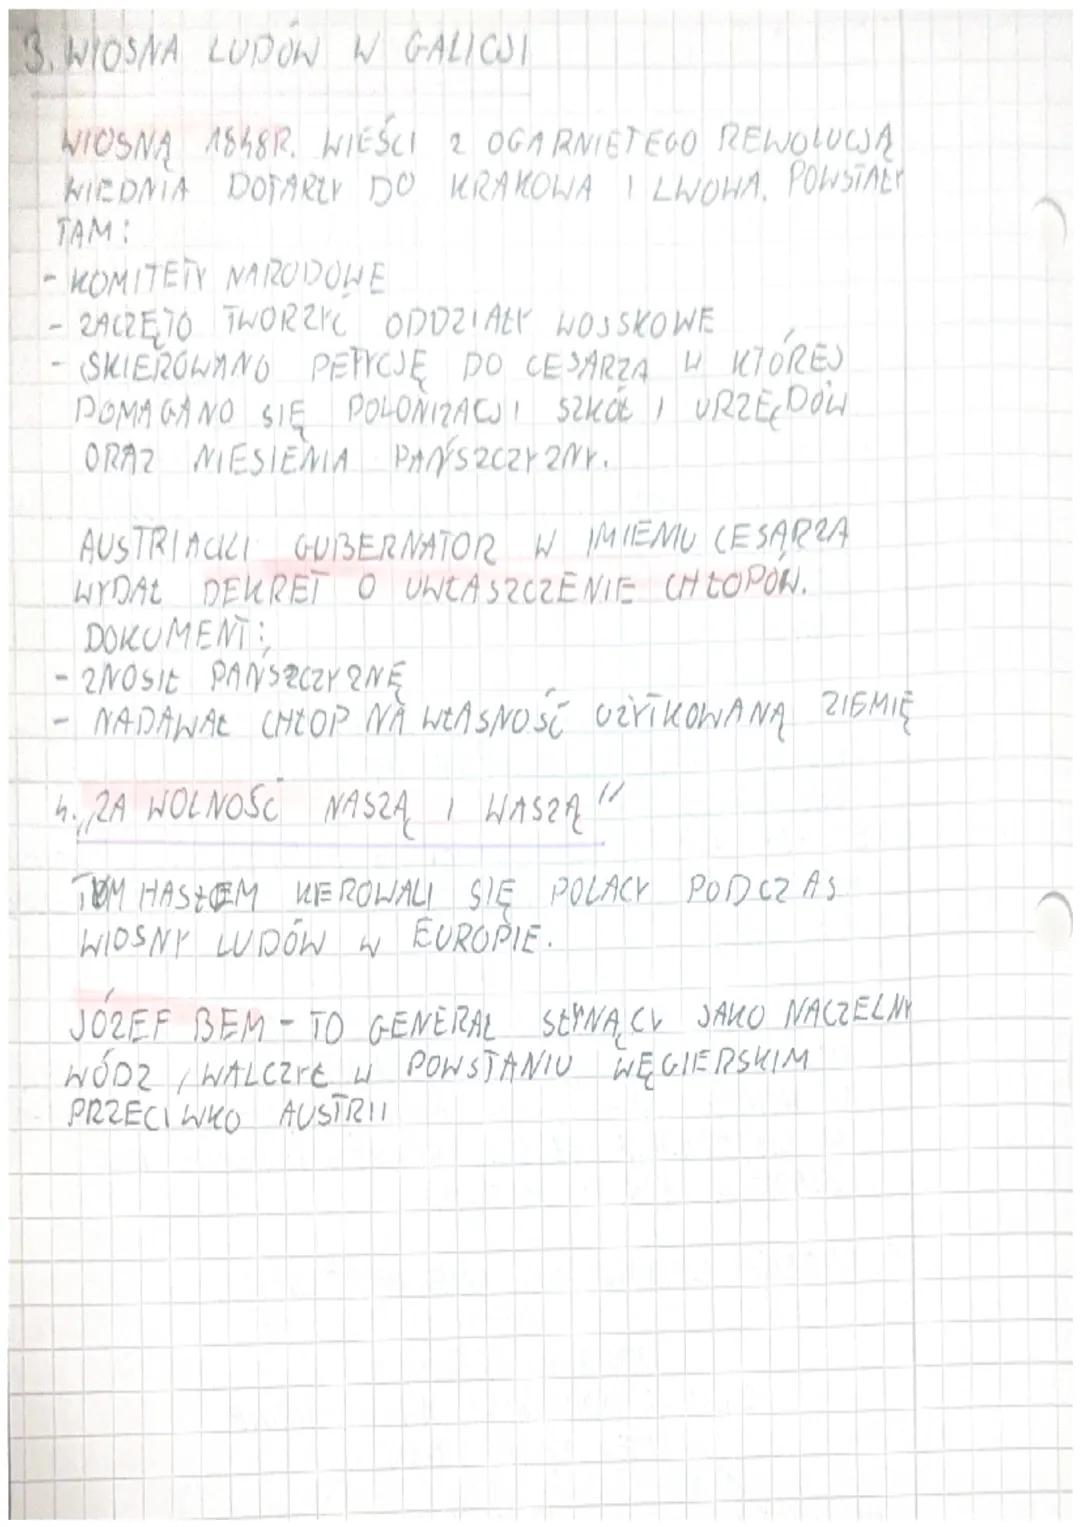 3. WIOSNA LUDÓW W GALICJI
WIOSNĄ 1848R. WIEŚCI Z OGARNIETEGO REWOLUCJĄ
WIEDNIA DOTARŁY DO KRAKOWA I LWOWA. POWSTAŁY
TAM:
- KOMITETY NARODOWE
- ZACZĘTO TWORZYĆ ODDZIAŁY WOJSKOWE
- SKIEROWANO PETYCJĘ DO CESARZA W KTÓREJ
DOMAGANO SIĘ POLONIZACJI SZKÓŁ I URZĘDÓW
ORAZ NIESIENIA PAŃSZCZYZNY.
AUSTRIACKI GUBERNATOR W IMIENIU CESARZA
WYDAŁ DEKRET O UWŁASZCZENIE CHŁOPÓW.
DOKUMENT:
- ZNOSIŁ PAŃSZCZYZNĘ
- NADAWAŁ CHŁOP NA WŁASNOŚĆ UŻYTKOWANĄ ZIEMIĘ
4. „ZA WOLNOŚĆ NASZĄ I WASZĄ"
TYM HASŁEM KIEROWALI SIĘ POLACY PODCZAS
WIOSNY LUDÓW W EUROPIE.
JÓZEF BEM - TO GENERAŁ SŁYNĄCY JAKO NACZELNY
WÓDZ, WALCZYŁ W POWSTANIU WĘGIERSKIM
PRZECIWKO AUSTRII